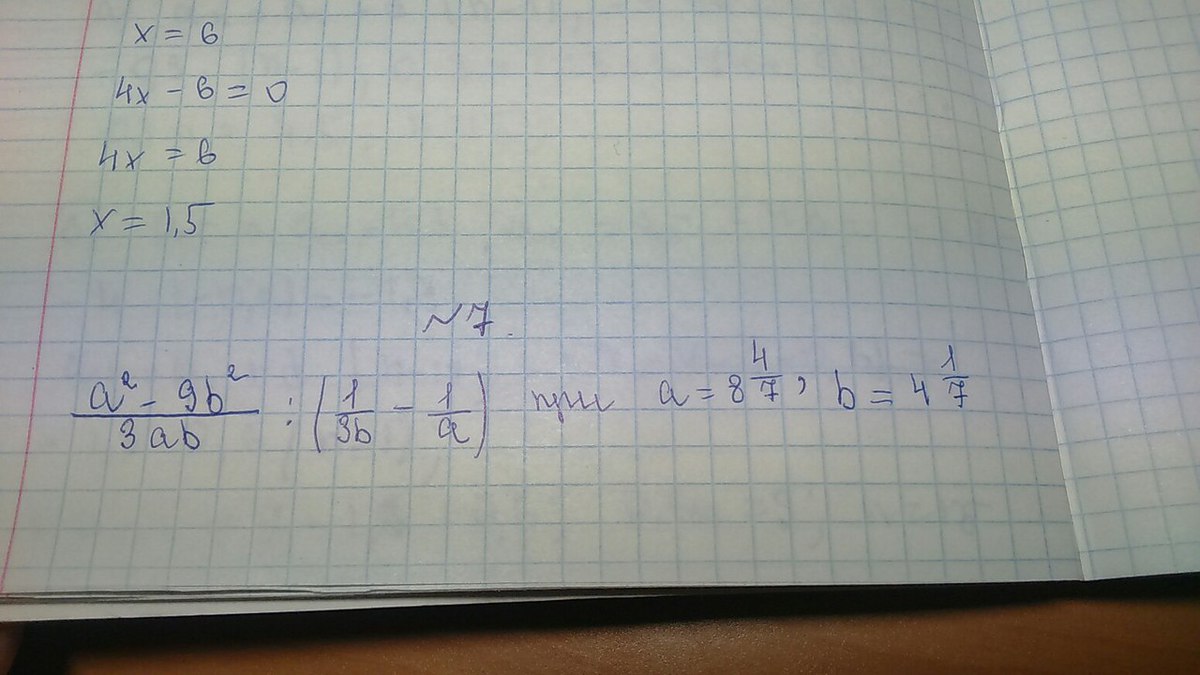 x = 6
4x - 6 = 0
4x = 6
x = 1,5
№7.
(a² - 9b²)/(3ab) : (1/(3b) - 1/a) при a = 8 4/7, b = 4 1/7